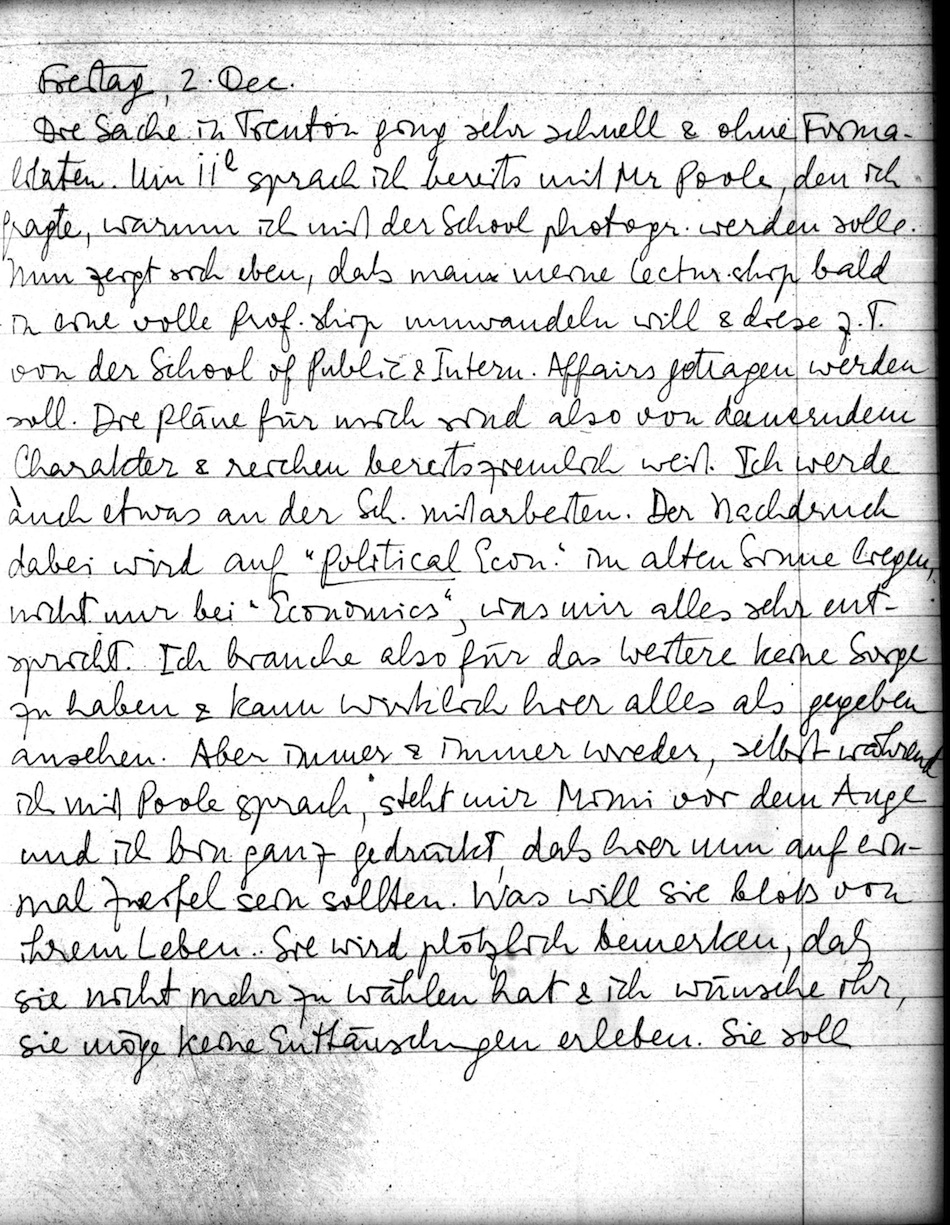 Freitag, 2. Dec.
Die Sache in Trenton ging sehr schnell & ohne Forma-
litäten. Um 11e sprach ich bereits mit Mr Poole, den ich
fragte, warum ich mit der School photogr. werden solle.
Nun zeigt sich eben, dass man meine Lectur.ship bald
in eine volle Prof.ship umwandeln will & diese z.T.
von der School of Public & Intern. Affairs getragen werden
soll. Die Pläne für mich sind also von dauerndem
Charakter & reichen bereits ziemlich weit. Ich werde
auch etwas an der Sch. mitarbeiten. Der Nachdruck
dabei wird auf "Political Econ." im alten Sinne liegen,
nicht nur bei "Economics", was mir alles sehr ent-
spricht. Ich brauche also für das Weitere keine Sorge
zu haben & kann wirklich hier alles als gegeben
ansehen. Aber immer & immer wieder, selbst während
ich mit Poole sprach, steht mir Mimi vor dem Auge
und ich bin ganz gedrückt, dass hier nun auf ein-
mal Zweifel sein sollten. Was will sie bloss von
ihrem Leben.. Sie wird plötzlich bemerken, dass
sie nicht mehr zu wählen hat & ich wünsche ihr,
sie möge keine Enttäuschungen erleben. Sie soll